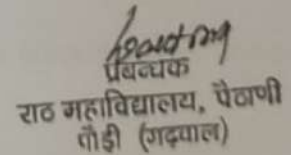 प्रबन्धक
राठ महाविद्यालय, पैठाणी
पौड़ी (गढ़वाल)